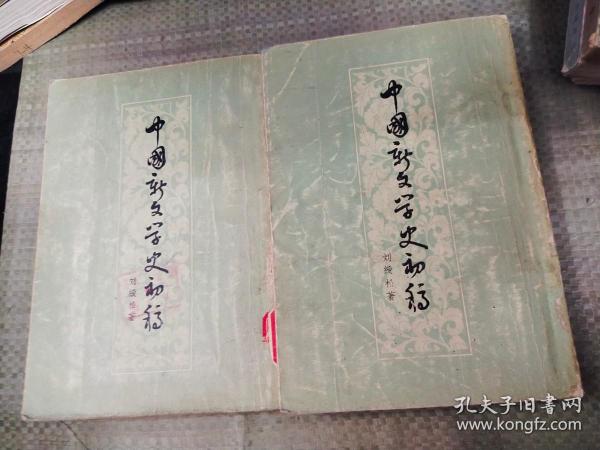 中國新文学史初稿
刘綬松著
中國新文学史初稿
刘綬松著
孔夫子旧書网
www.kongfz.com